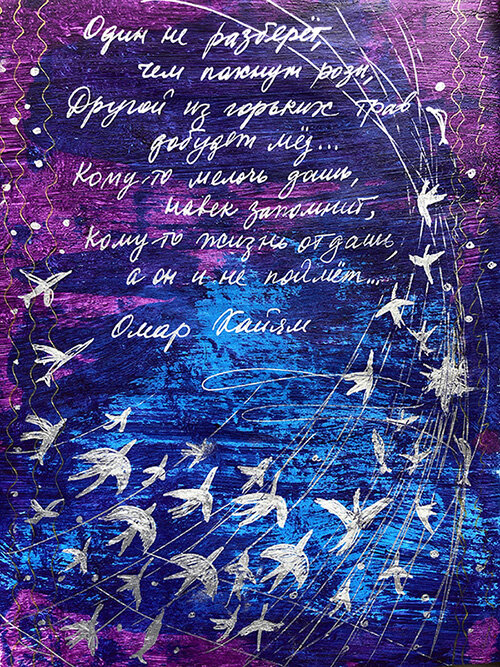 Один не разберёт,
чем пахнут розы,
Другой из горьких трав
добудет мёд...
Кому-то мелочь дашь,
навек запомнит,
Кому-то жизнь отдашь,
а он и не поймёт...
Омар Хайям